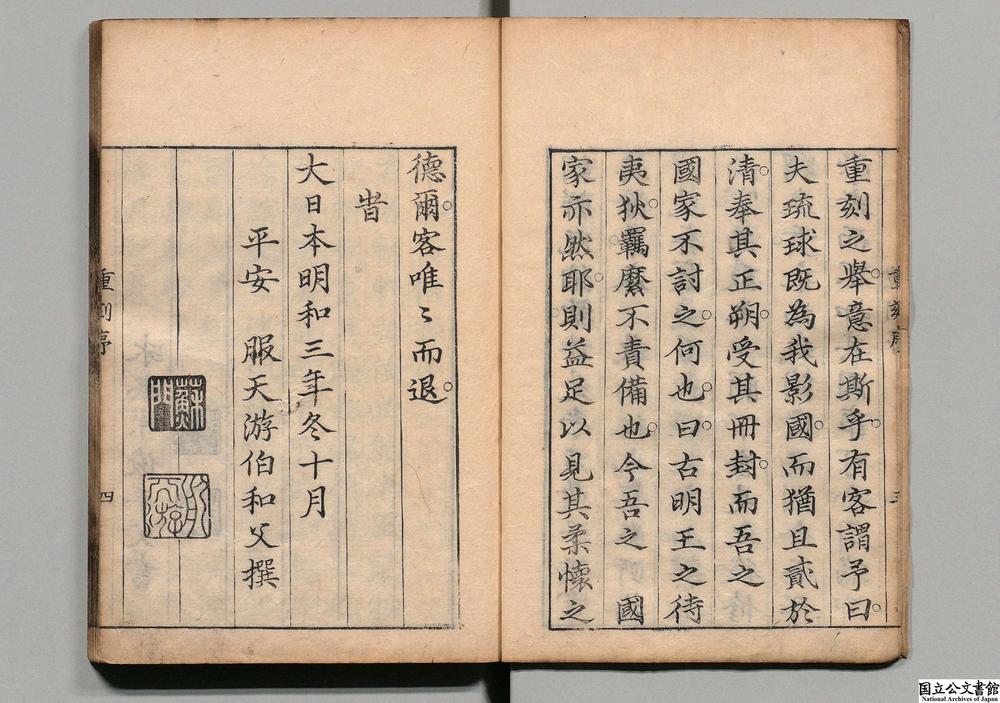 重刻之舉。意在斯乎。有客謂予曰。
夫琉球既為我影國。而猶且貳於
清。奉其正朔。受其冊封。而吾之
國家不討之。何也。曰古明王之待
夷狄。羈縻不責備也。今吾之國
家亦然耶。則益足以見其柔懷之
重刻序
三
德爾。客唯〻而退。
旹
大日本明和三年冬十月
平安 服天游伯和父撰
蘇門
重刻序
四
国立公文書館
National Archives of Japan